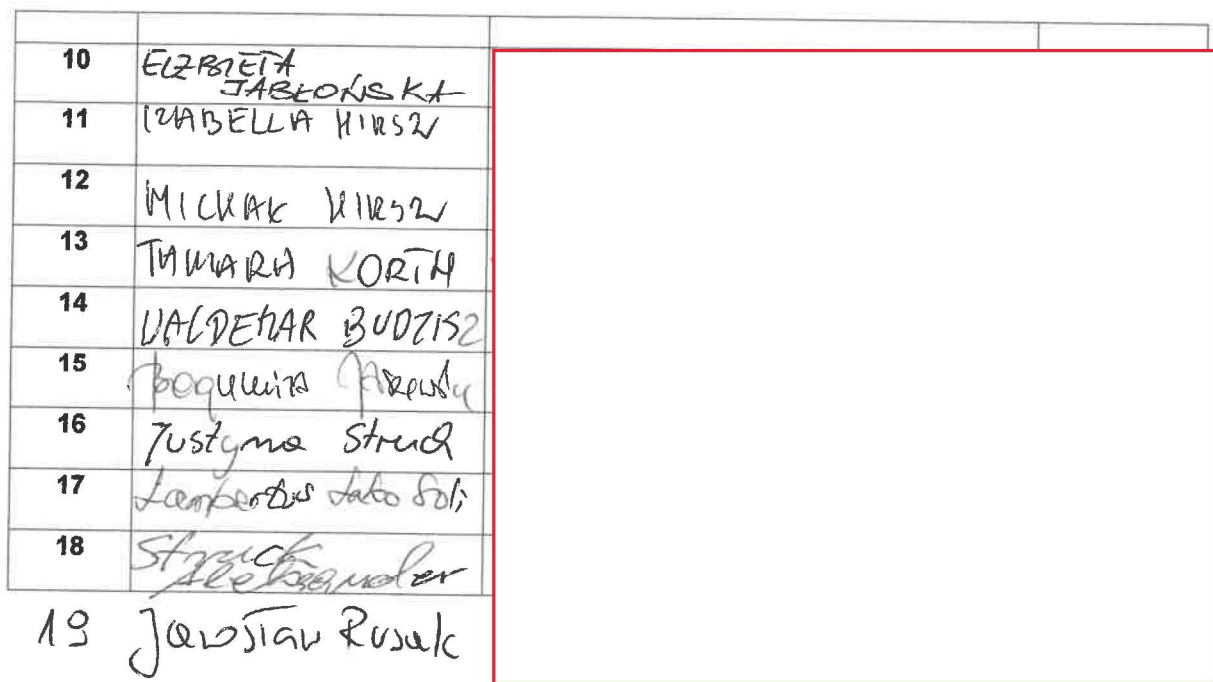 10 ELŻBIETA
JABŁOŃSKA
11 IZABELLA HIRSZ
12 MICHAŁ HIRSZ
13 TAMARA KORTH
14 WALDEMAR BUDZISZ
15 Bogumiła
16 Justyna Struck
17 Lambertus Lato Soli
18 Struck
Aleksander
19 Jarosław Rusak